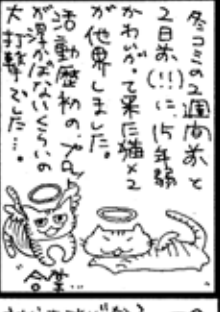 冬コミの2週間前と
2日前(!!)に、15年弱
かわいがって来た猫×2
が他界しました。
活動歴初の、プロット
が浮かばないくらいの
大打撃でした…。
合掌…